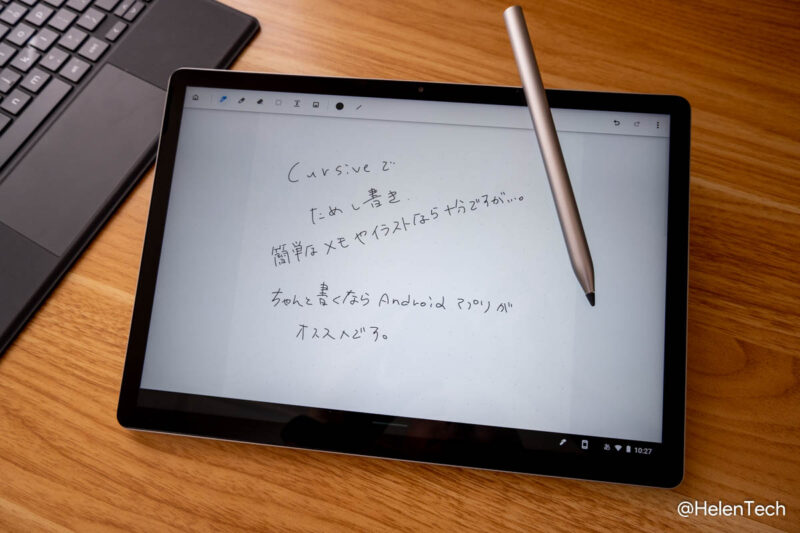 Cursiveで
ためし書き.
簡単なメモやイラストなら十分ですが…。
ちゃんと書くなら Android アプリが
オススメです。
あ 10:27
@HelenTech